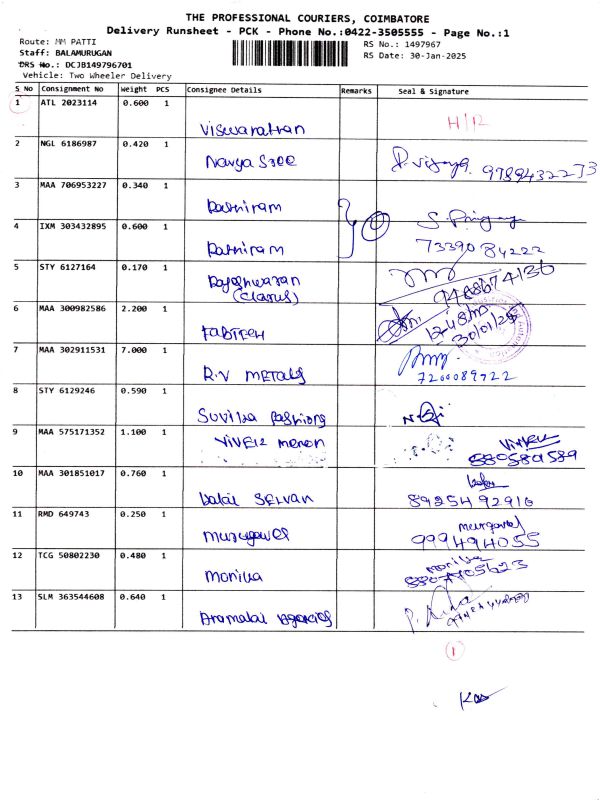 THE PROFESSIONAL COURIERS, COIMBATORE
Delivery Runsheet - PCK - Phone No.:0422-3505555 - Page No.:1
Route: MM PATTI
RS No.: 1497967
Staff: BALAMURUGAN
RS Date: 30-Jan-2025
DRS No.: DCJB149796701
Vehicle: Two Wheeler Delivery
S No Consignment No Weight PCS Consignee Details Remarks Seal & Signature
1 ATL 2023114 0.600 1
Viswaratran H/12
2 NGL 6186987 0.420 1
Navya Sree 9789432273
3 MAA 706953227 0.340 1
Patniram
4 IXM 303432895 0.600 1
Patniram 7339084222
5 STY 6127164 0.170 1
Rajeshwaran
(Clasus)
6 MAA 300982586 2.200 1
FABTECH 30/01/25
7 MAA 302911531 7.000 1
R.V METALS 7200089722
8 STY 6129246 0.590 1
Suvilsa Fashions
9 MAA 575171352 1.100 1
Vivek menon
10 MAA 301851017 0.760 1
kalai SELVAN 8925492916
11 RMD 649743 0.250 1
murugavel 999494055
12 TCG 50802230 0.480 1
monilsa
13 SLM 363544608 0.640 1
Aramalai Agencies
1